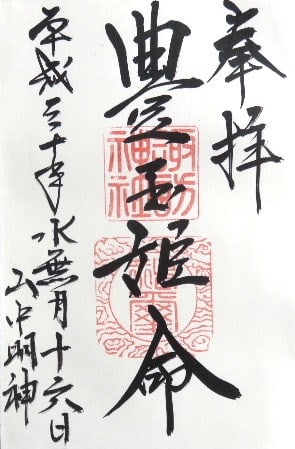 奉拝
豊玉姫命
諏訪
神社
平成三十年水無月十六日
山中明神